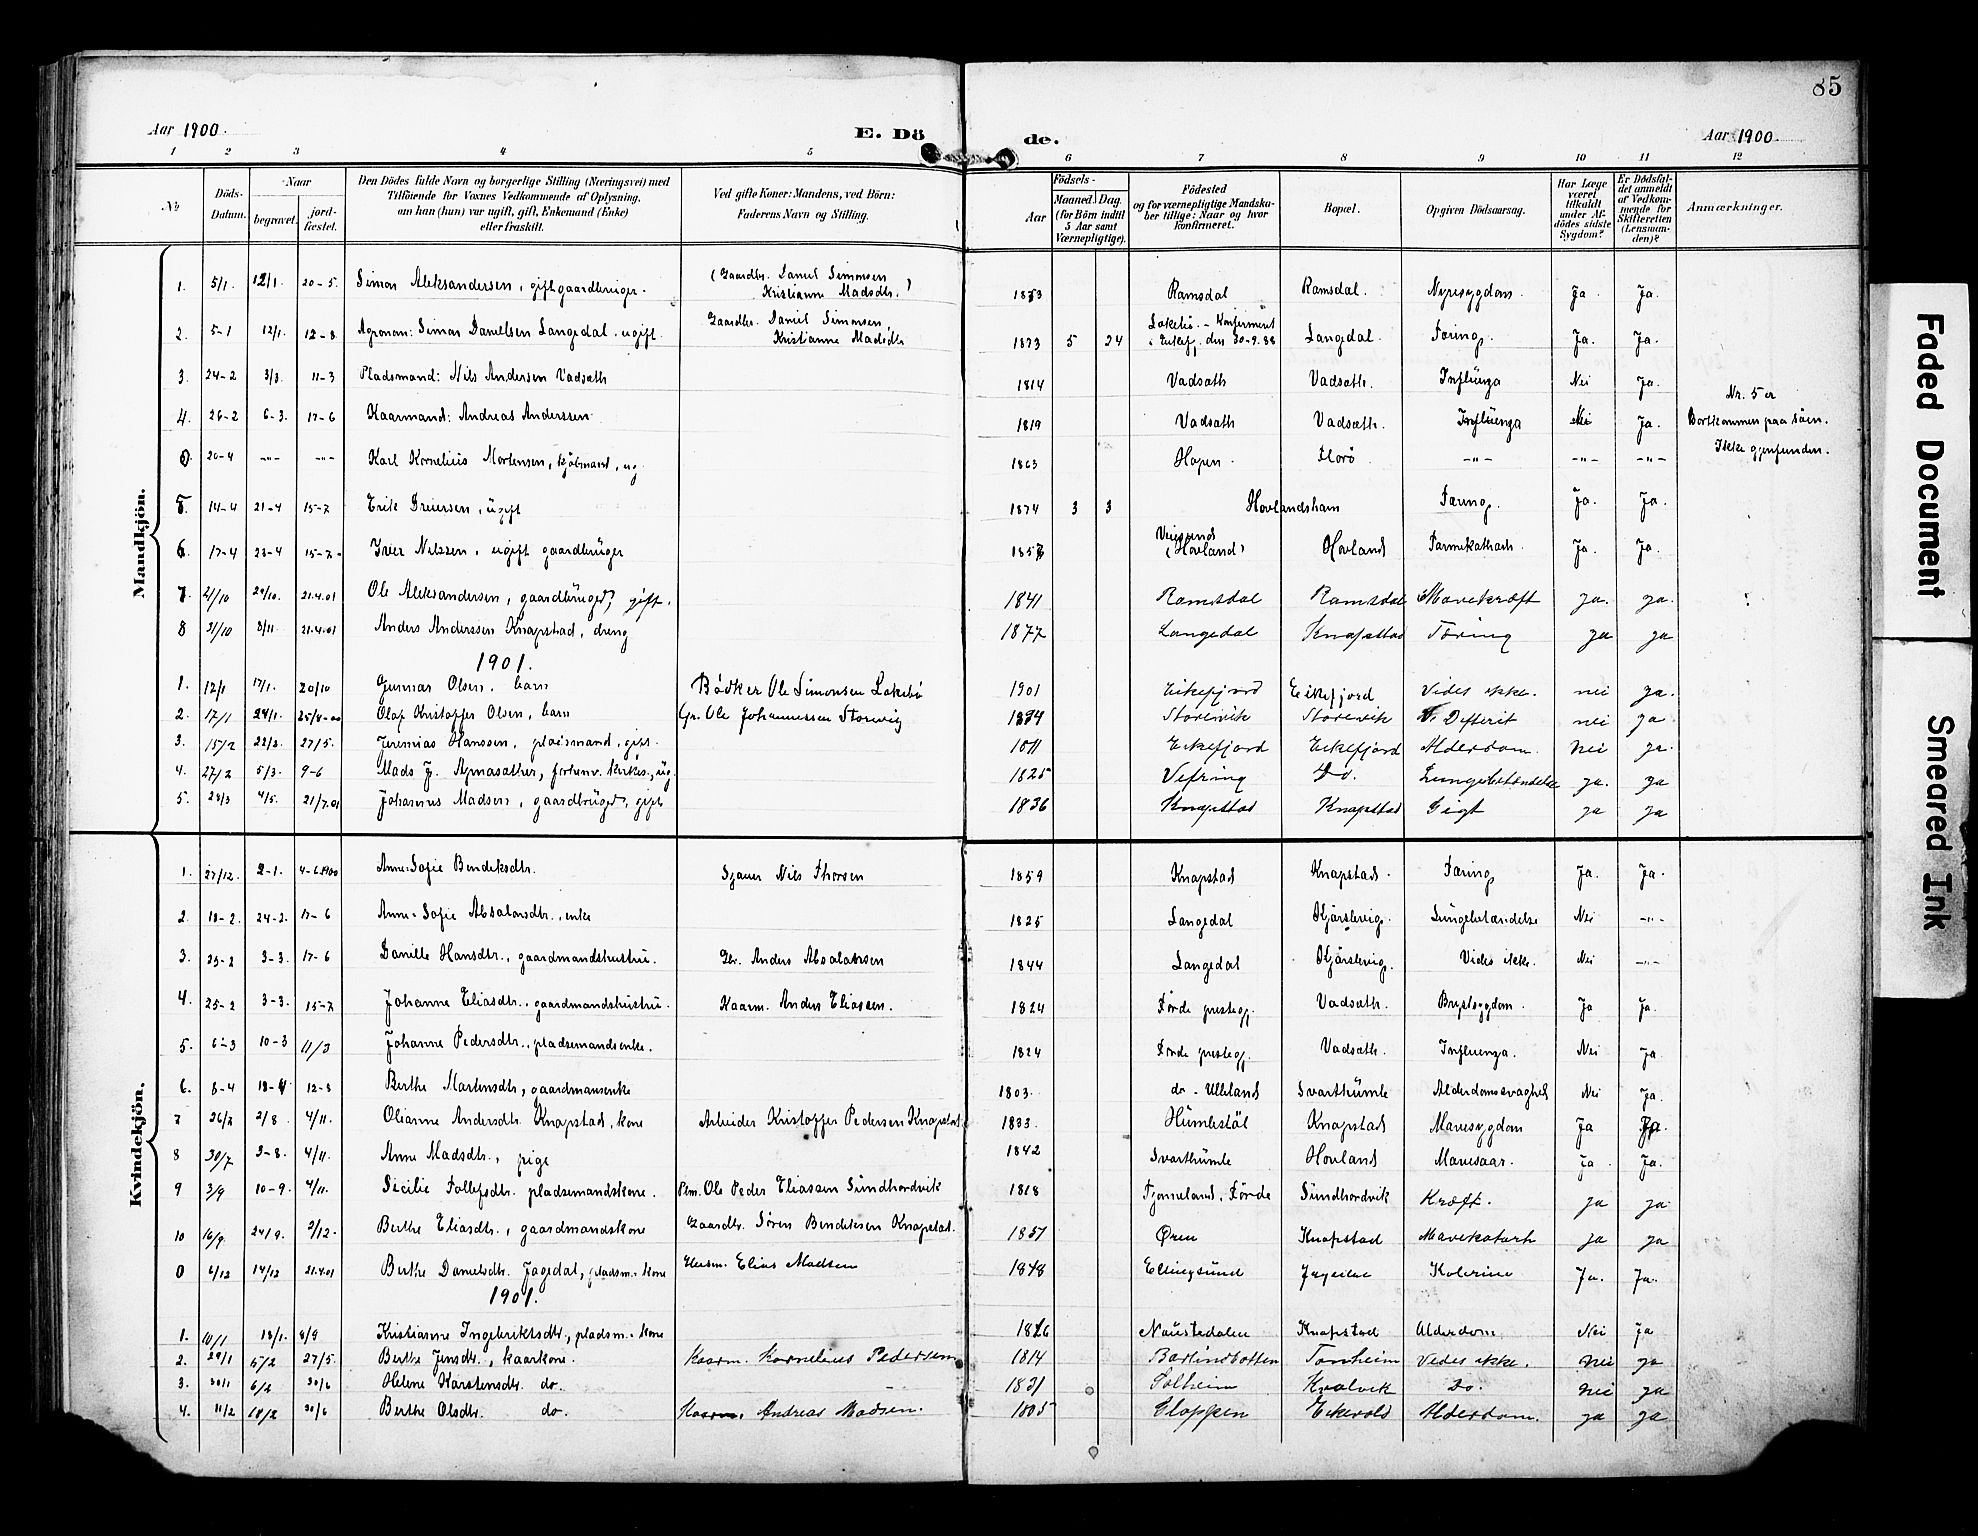 85
Aar 1900.
E. Dö
de.
Aar 1900.
1 2 3 4 5 6 7 8 9 10 11 12
No
Döds-Datum.
Naar
begravet.
jord-fæstet.
Den Dödes fulde Navn og borgerlige Stilling (Næringsvei) med
Tilföiende for Voxnes Vedkommende af Oplysning,
om han (hun) var ugift, gift, Enkemand (Enke)
eller fraskilt.
Ved gifte Koner: Mandens, ved Börn:
Faderens Navn og Stilling.
Födsels-
Aar
Maaned. Dag.
(for Börn indtil
5 Aar samt
Værnepligtige).
Födested
og for værnepligtige Mandska-
ber tillige: Naar og hvor
konfirmeret.
Bopæl.
Opgiven Dödsaarsag.
Har Læge
været
tilkaldt
under Af-
dödes sidste
Sygdom?
Er Dödsfal-
det anmeldt
af Vedkom-
mende for
Skifteretten
(Lensman-
den)?
Anmærkninger.
Mandkjön.
1. 5/1. 12/1. 20-5. Simon Aleksandersen, gift gaardbruger. (Gaardbr. Daniel Simonsen Kristianne Madsdtr.) Ramsdal Ramsdal. Nyresygdom. Ja. Ja.
2. 5-1 12/1. 12-8 Agronom: Simon Danielsen Langedal, ugift. Gaardbr. Daniel Simonsen, Kristianne Madsdtr 1873 5 24 Løkebø. - Konfirmeret i Eikefj. den 30-9.88 Langedal. Tæring. Ja. Ja.
3. 24-2 3/3. 11-3 Pladsmand: Nils Andersen Vadsæth 1814 Vadsæth Vadsæth. Inflüenza Nei Ja.
4. 26-2 6-3. 17-6 Kaarmand: Andreas Anderssen 1819 Vadsæth Vadsæth. Inflüenza Nei Ja.
Nr. 5 er
Bortkommen paa Søen.
Ikke gjenfunden.
0 20-4 -"- -"- Karl Kornelius Mortensen, kjøbmand, ug. 1863 Hopen. Florø -"- -"- -"-
5. 14-4 21-4 15-7 Erik Dreiersen, ügift 1874 3 3 Hovlandsham Tæring. Ja. Ja.
6. 17-4 23-4 15-7- Iver Nilssen, ugift gaardbrüger (Hovland) Hovland Tarmekathar. Ja. Ja.
7. 21/10 29/10. 21.4.01 Ole Aleksandersen, gaardbrüger, gift. 1841 Ramsdal Ramsdal Mavekræft ja. ja.
8 31/10 8/11 21.4.01 Anders Anderssen Knapstad, dreng 1877 Langedal Knapstad Tæring ja ja
1901.
1. 12/1 17/1. 20/10 Gunnar Olsen, barn Bødker Ole Simonsen Løkebø 1901 Eikefjord Eikefjord Vides ikke. nei ja.
2. 17/1 24/1. Olaf Kristoffer Olsen, barn Gr. Ole Johannessen Storevig 1894 Storevik Storevik Difterit nei ja
3. 15/2 22/2. 27/5. Jeremias Hanssen, pladsmand, gift. 1811 Eikefjord Eikefjord Alderdom. nei ja.
4. 27/2 5/3. 9-6 Mads J. 1825 Vefring Do. Lungebetændelse ja. ja
5. 28/3 4/5. 21/7.01 Johannes Madsen, gaardbrüger, gift 1836 Knapstad Knapstad Gigt ja ja
Kvindekjön.
1. 27/12. 2-1. 4-6.1900 Anne Sofie Bendiksdtr. Nils Thorsen 1859 Knapstad Knapstad. Tæring Ja. Ja.
2. 18-2. 24-2. 17-6 Anne-Sofie Absalonsdtr., enke 1825 Langedal Kjørslevig. Lungebetændelse Nei -"-
3. 25-2 3-3. 17-6 Danille Hansdtr., gaardmandshustru. Gbr. Anders Absalonsen 1844 Langedal Kjørslevig. Vides ikke. Nei -"-
4. 25-2 3-3. 15-7 Johanne Eliasdtr., gaardmandshustru. Kaarm. Anders Eliassen. 1824 Førde presteg. Vadsæth. Brystsygdom. Ja Ja.
5. 6-3 10-3 11/3 Johanne Pedersdtr., pladsemandsenke. 1824 Førde presteg. Vadsæth. Influenza. Nei Ja
6. 8-4 18-4 12-8 Berthe Martensdtr, gaardmansenke 1803. do - Ulleland Svarthümle Alderdomssvaghed Nei Ja.
7 26/7 2/8 4/11. Olianne Andersdtr Knapstad, kone Arbeider Kristoffer Pedersen Knapstad 1833. Hümlestøl Knapstad Mavesygdom Ja Ja.
8 30/7 3-8. 4/11. Anne Madsdtr., pige 1842 Svarthümle Hovland Mavesaar. Ja Ja.
9 3/9 10-9. 4/11. Sicilie Tollefsdtr. pladsemandskone. Plm. Ole Peder Eliassen Sündhordvik 1818 Førde Sündhordvik Kræft. ja ja
10 16/9. 24/9. 2/12. Berthe Eliasdtr., gaardmandskone Gaardbr. Søren Bendiksen Knapstad. Øren Knapstad Mavekatarh ja ja
0 6/12 14/12 21.4.01 Berthe Danielsdtr. Jagedal, pladsm.-kone Elias Madsen Kolerine Ja. Ja.
1901.
1. 10/1 18/1. Kristianne Ingebriktsdtr., pladsm.-kone Naustedalen Knapstad Alderdom. Nei Ja
2. 29/1 5/2 27/5. Berthe Jensdtr., kaarkone. Kaarm. Kornelius Pedersen 1814 Barlindbotten Tonheim Vides ikke. nei ja
3. 30/1 6/2 30/6 Helene Karstensdtr. do. 1831 Solheim Kvalvik Do. nei ja
4. 11/2 18/2 30/6 Berthe Olsdtr. do. Kaarm. Andreas Madsen. 1805 Gloppen Alderdom. ja ja
Faded Document
Smeared Ink